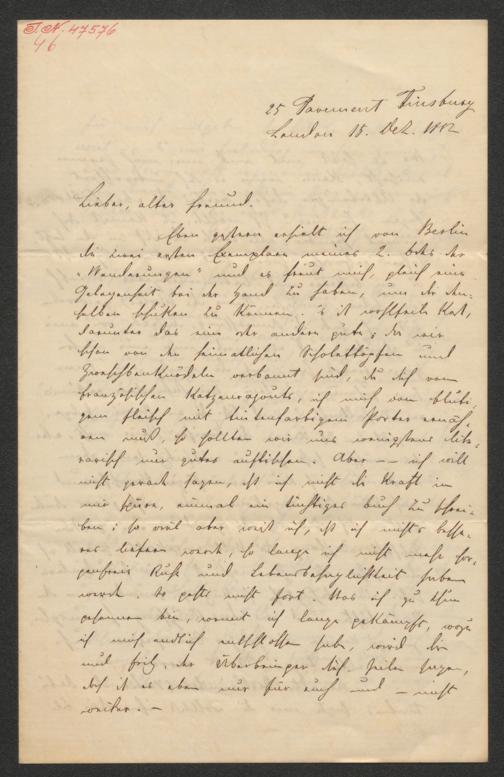 I.N. 47576
46
25 Pavement Finsbury
London 15. Dez. 1882
Lieber, alter Freund.
Eben gestern erhielt ich von Berlin
die zwei ersten Exemplare meines 2. Bds der
"Wanderungen" und es freut mich, gleich eine
Gelegenheit bei der Hand zu haben, um dir den-
selben schicken zu können. Es ist
darunter das eine oder andere gute; da wir
schon von den heimatlichen und
Zwetschkenknödeln verbannt sind, du dich von
französischen Katzenragouts, ich mich von bluti-
gem Fleisch mit tintenfarbigem Porter ernäh-
ren muß, so sollten wir uns wenigstens lite-
rarisch nur gutes auftischen. Aber — — ich will
nicht gerade sagen, daß ich nicht die Kraft in
mir spüre, einmal ein tüchtiges Buch zu schrei-
ben; so viel aber weiß ich, daß ich nichts besse-
res liefern werde, so lange ich nicht mehr sor-
genfreie Ruhe und Lebensbehaglichkeit haben
werde. So geht's nicht fort. Was ich zu thun
gesonnen bin, womit ich lange gekämpft, wozu
ich mich endlich entschlossen habe, wird dir
mein Fritz, der Überbringer dieser Zeilen sagen,
doch ist es eben nur für euch und — nicht
weiter. —